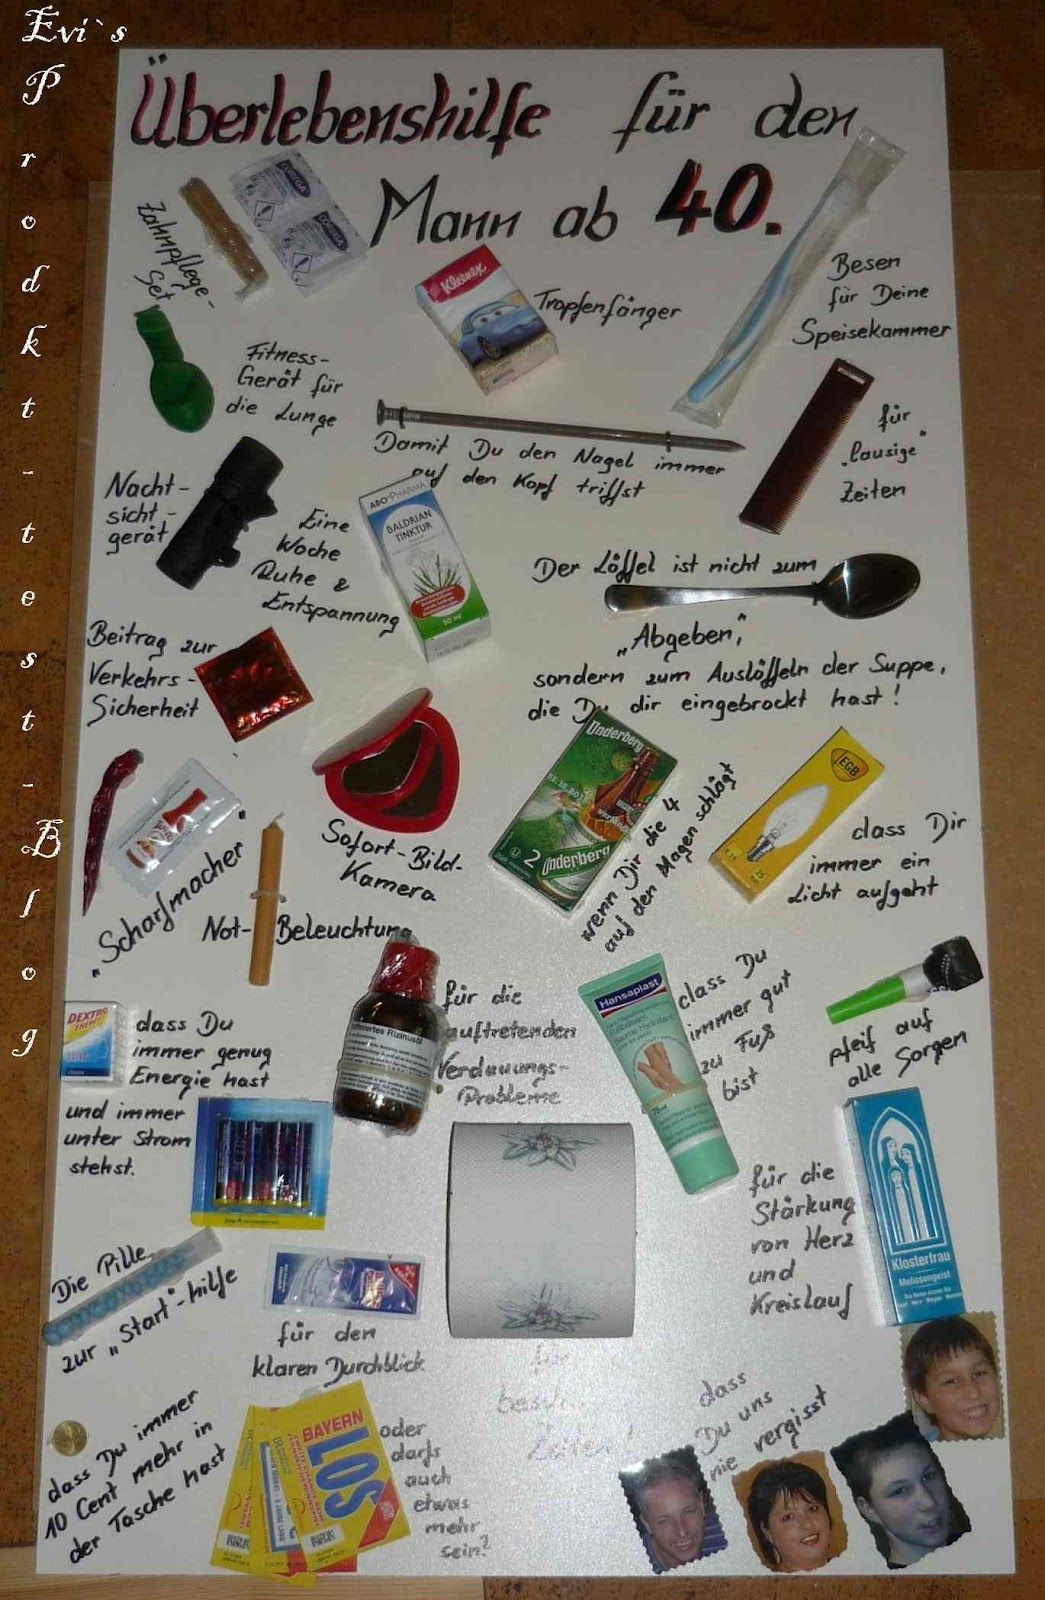 Evi`s Prodkt-test-Blog
"Überlebenshilfe für den
Mann ab 40.
Zahnpflege-
Set
Kleenex
Tropfenfänger
Besen
für Deine
Speisekammer
Fitness-
Gerät für
die Lunge
Damit Du den Nagel immer
auf den Kopf triffst
für
„lausige"
Zeiten
Nacht-
sicht-
gerät
Eine
Woche
Ruhe &
Entspannung
ABO-PHARMA
BALDRIAN
TINKTUR
50 ml
Der Löffel ist nicht zum
„Abgeben",
sondern zum Auslöffeln der Suppe,
die Du dir eingebrockt hast!
Beitrag zur
Verkehrs-
Sicherheit
„Scharfmacher"
Sofort-Bild-
Kamera
Underberg
2 Underberg
wenn Dir die 4
auf den Magen schlägt
EGB
dass Dir
immer ein
Licht aufgeht
Not-Beleuchtung
DEXTRO
ENERGY
classic
dass Du
immer genug
Energie hast
und immer
unter Strom
stehst.
Raffiniertes Rizinusöl
für die
auftretenden
Verdauungs-
Probleme
Hansaplast
75 ml
dass Du
immer gut
zu Fuß
bist
pfeif auf
alle Sorgen
für die
Stärkung
von Herz
und
Kreislauf
Klosterfrau
Melissengeist
Die Pille
zur „Start"-hilfe
für den
klaren Durchblick
für
Zeiten!
dass Du immer
10 Cent mehr in
der Tasche hast
BAYERN
LOS
oder
darfs
auch
etwas
mehr
sein?
dass
Du uns
nie vergisst